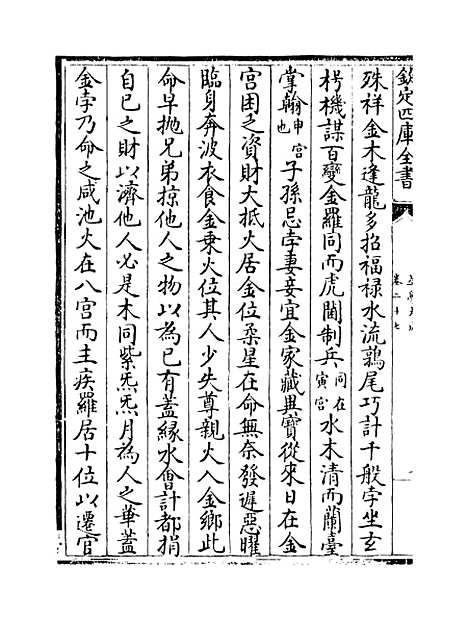 欽定四庫全書
卷二十七
殊祥金木逢龍多招福禄水流鶉尾巧計千般孛坐玄
枵機謀百變金羅同而虎閫制兵同在寅宮水木清而蘭臺
掌翰申宮也子孫忌孛妻妾宜金家藏典寶從來日在金
宮困乏資財大抵火居金位柔星在命無奈發遲惡曜
臨身奔波衣食金乗火位其人少失尊親火入金鄉此
命早抛兄弟掠他人之物以為已有蓋緣水㑹計都捐
自已之財以濟他人必是木同紫炁炁月為人之華蓋
金孛乃命之咸池火在八宮而主疾羅居十位以遷官